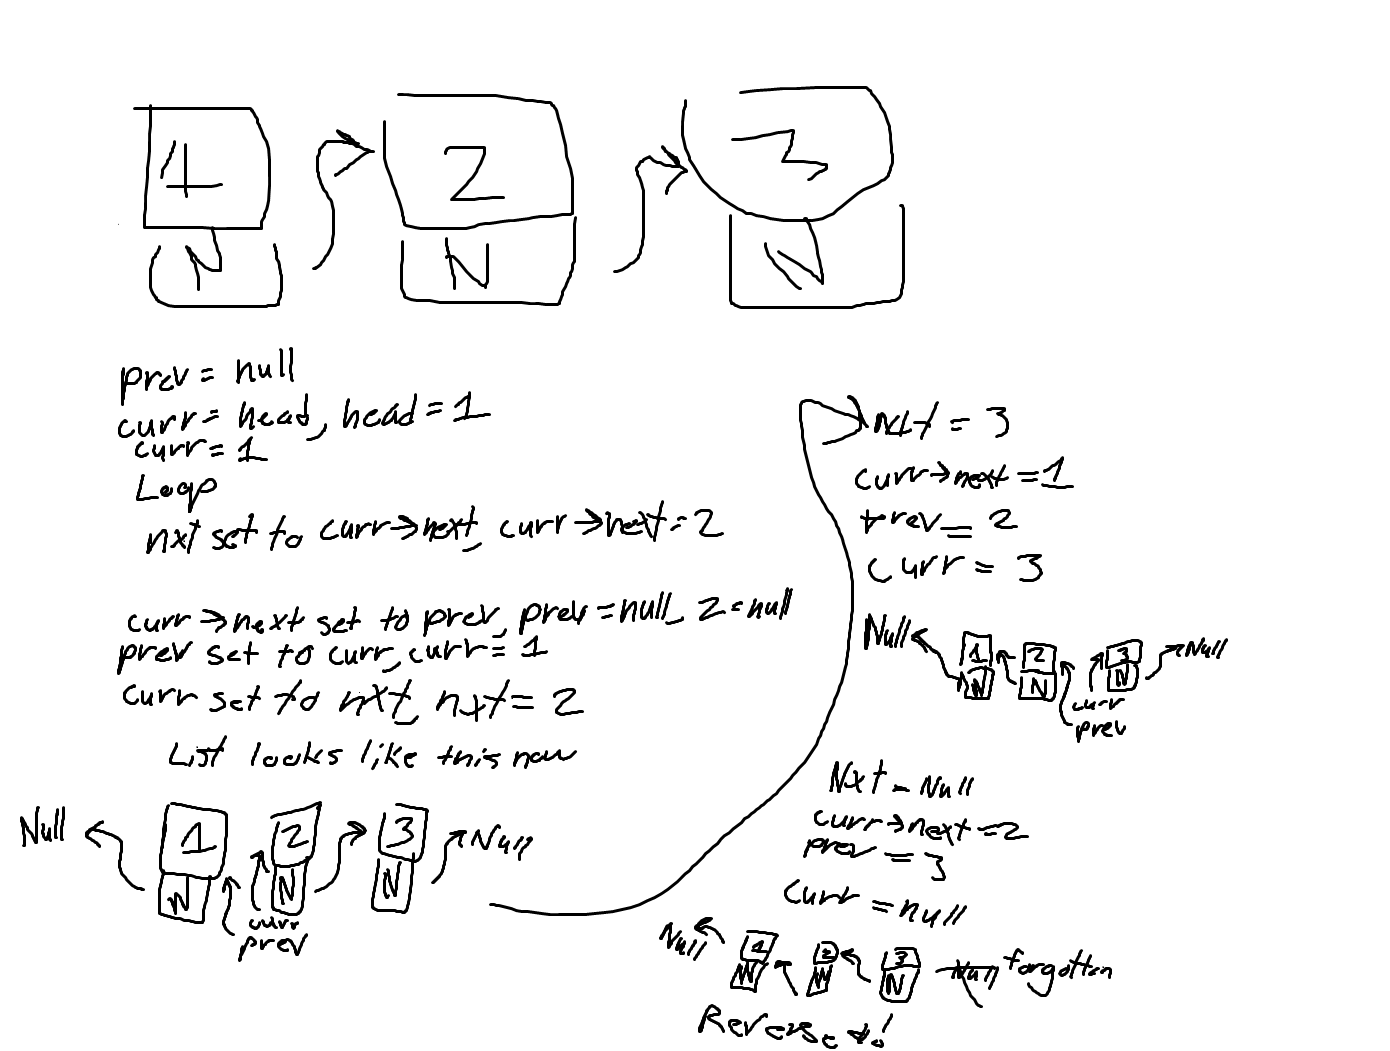 1 2 3
N N N
prev = null
curr = head, head = 1
curr = 1
Loop
nxt set to curr→next, curr→next = 2
curr→next set to prev, prev = null, 2 = null
prev set to curr, curr = 1
curr set to nxt, nxt = 2
List looks like this now
Null 1 2 3 Null
N N N
curr
prev
nxt = 3
curr→next = 1
prev = 2
curr = 3
Null 1 2 3 Null
N N N
curr
prev
Nxt = Null
curr→next = 2
prev = 3
curr = null
Null 1 2 3 Null forgotten
N N N
Reversed!